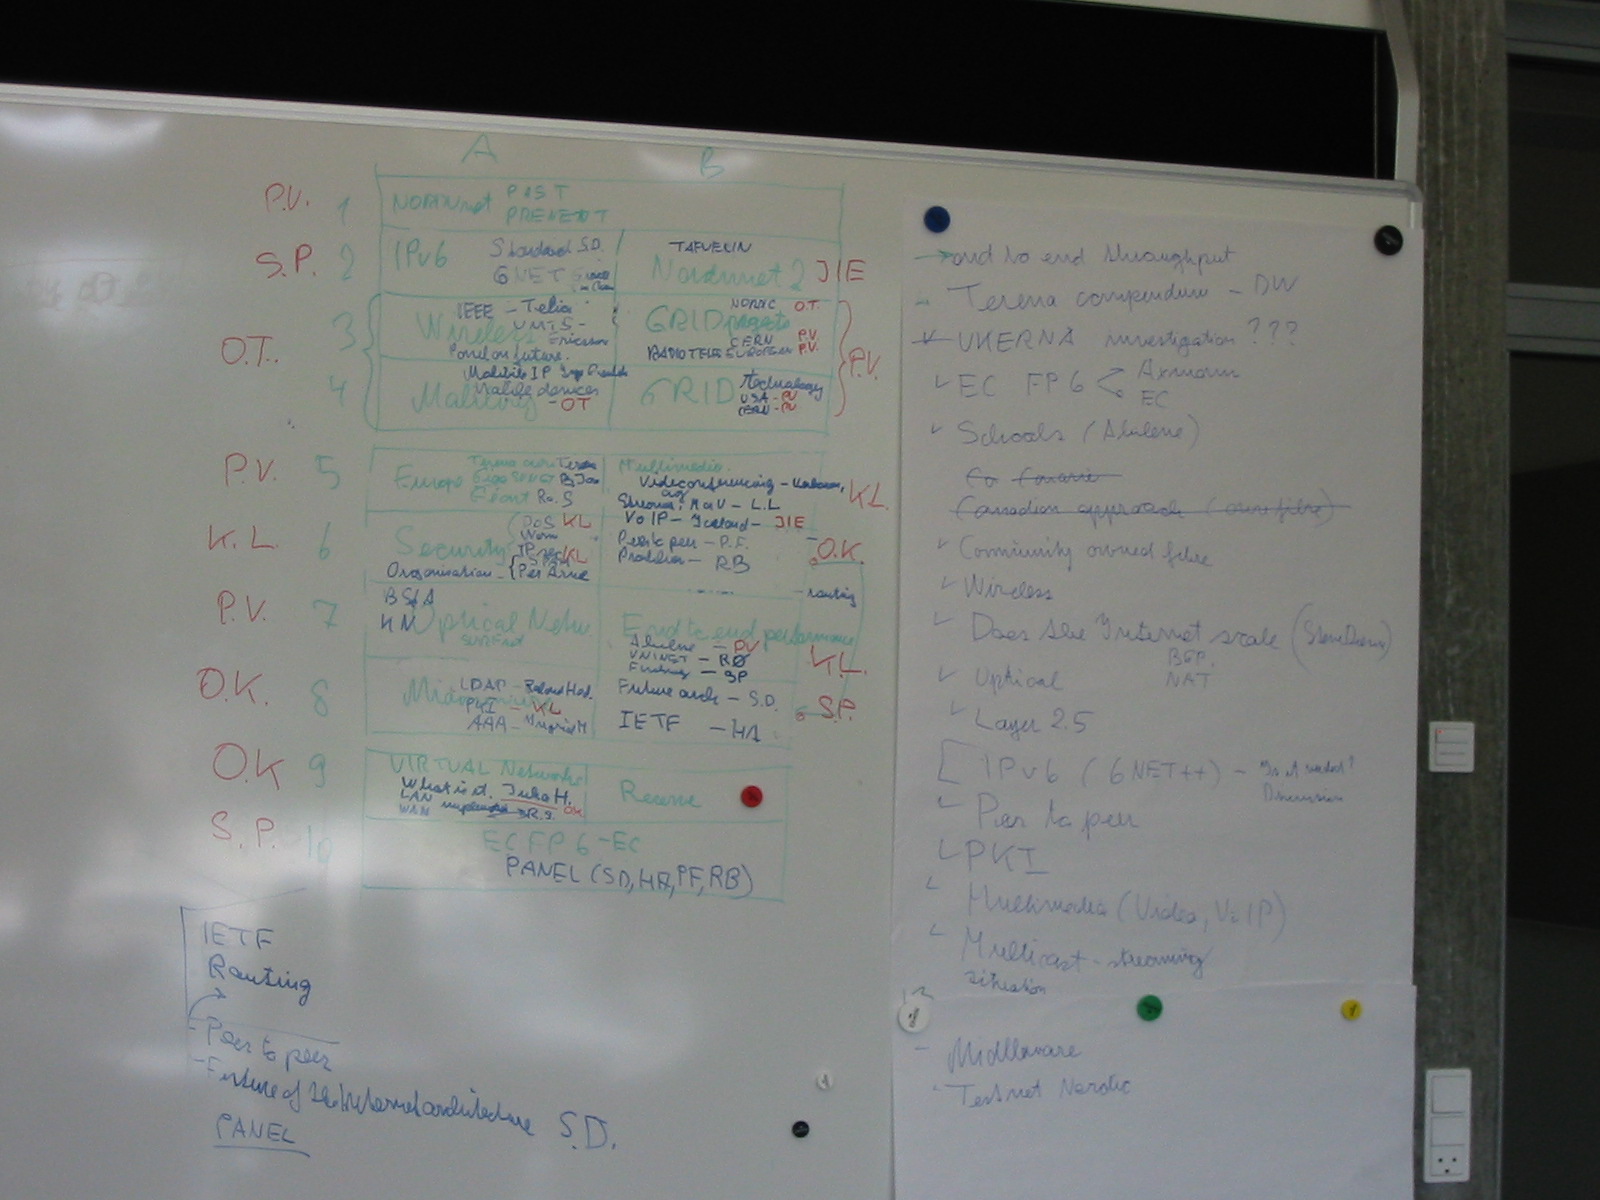 A B
P.V. 1 NORDUnet PAST
PRENEXT
S.P. 2 IPv6 Standard S.D.
6NET
TAFVELIN
Nordunet 2 JIE
O.T. 3 Wireless IEEE - Telia
UMTS -
Ericsson
Panel on future.
GRID projects O.T.
CERN P.V.
RADIO TELES EUROPEAN P.V.
P.V.
4 Mobility Mobile IP
Mobile devices
- OT
GRID technology
USA - PV
CERN - PV
P.V. 5 Europe
6NET
Géant Ro. S
Multimedia.
Videoconferencing -
- L.L
KL.
VoIP - Iceland - JIE
K.L. 6 Security DoS KL
Worm
IPsec KL
Organisation - Per Arne
Peer to peer - P.F.
Problem - RB
O.K.
- routing
P.V. 7 Optical Netw
SURFnet
End to end performance
Abilene - PV
UNINET - RØ
Funding - SP
K.L.
O.K. 8 Middleware LDAP -
PKI - KL
AAA - Ingrid M
Future arch - S.D.
IETF - HA
S.P.
O.K 9 VIRTUAL Networks
What is it. Juha H.
LAN OK
WAN
Reserve
S.P. 10 EC FP6 - EC
PANEL (SD, HA, PF, RB)
IETF
Routing
- Peer to peer
- Future of the internet architecture S.D.
PANEL
end to end throughput
Terena compendium - DW
UKERNA investigation ???
EC FP6
EC
Schools (Abilene)
Canadian approach
Community owned fibre
Wireless
Does the Internet scale (Steve Deering)
BGP.
NAT
Optical
Layer 2.5
IPv6 (6NET++) - Is it needed?
Discussion
Peer to peer
PKI
Multimedia (Video, VoIP)
Multicast - streaming
situation
- Middleware
- Testnet Nordic